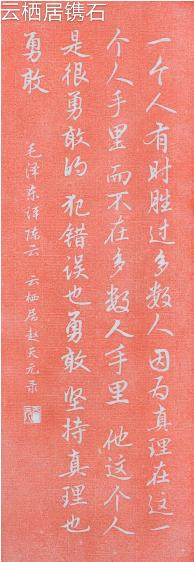 云栖居镌石
一个人有时胜过多数人因为真理在这一
个人手里而不在多数人手里他这个人
是很勇敢的犯错误也勇敢坚持真理也
勇敢
毛泽东评陈云 云栖居赵天元录